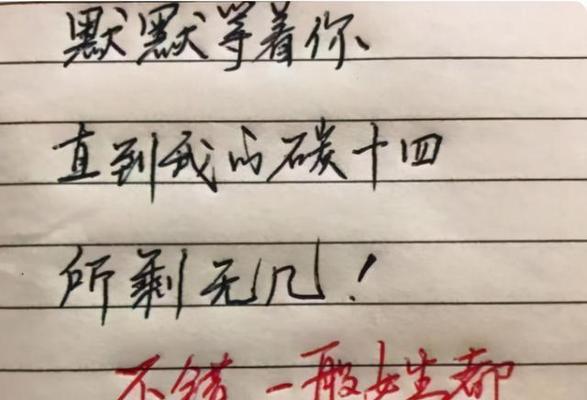 默默等着你、
直到我的碳十四
所剩无几！
不错 一般女生都